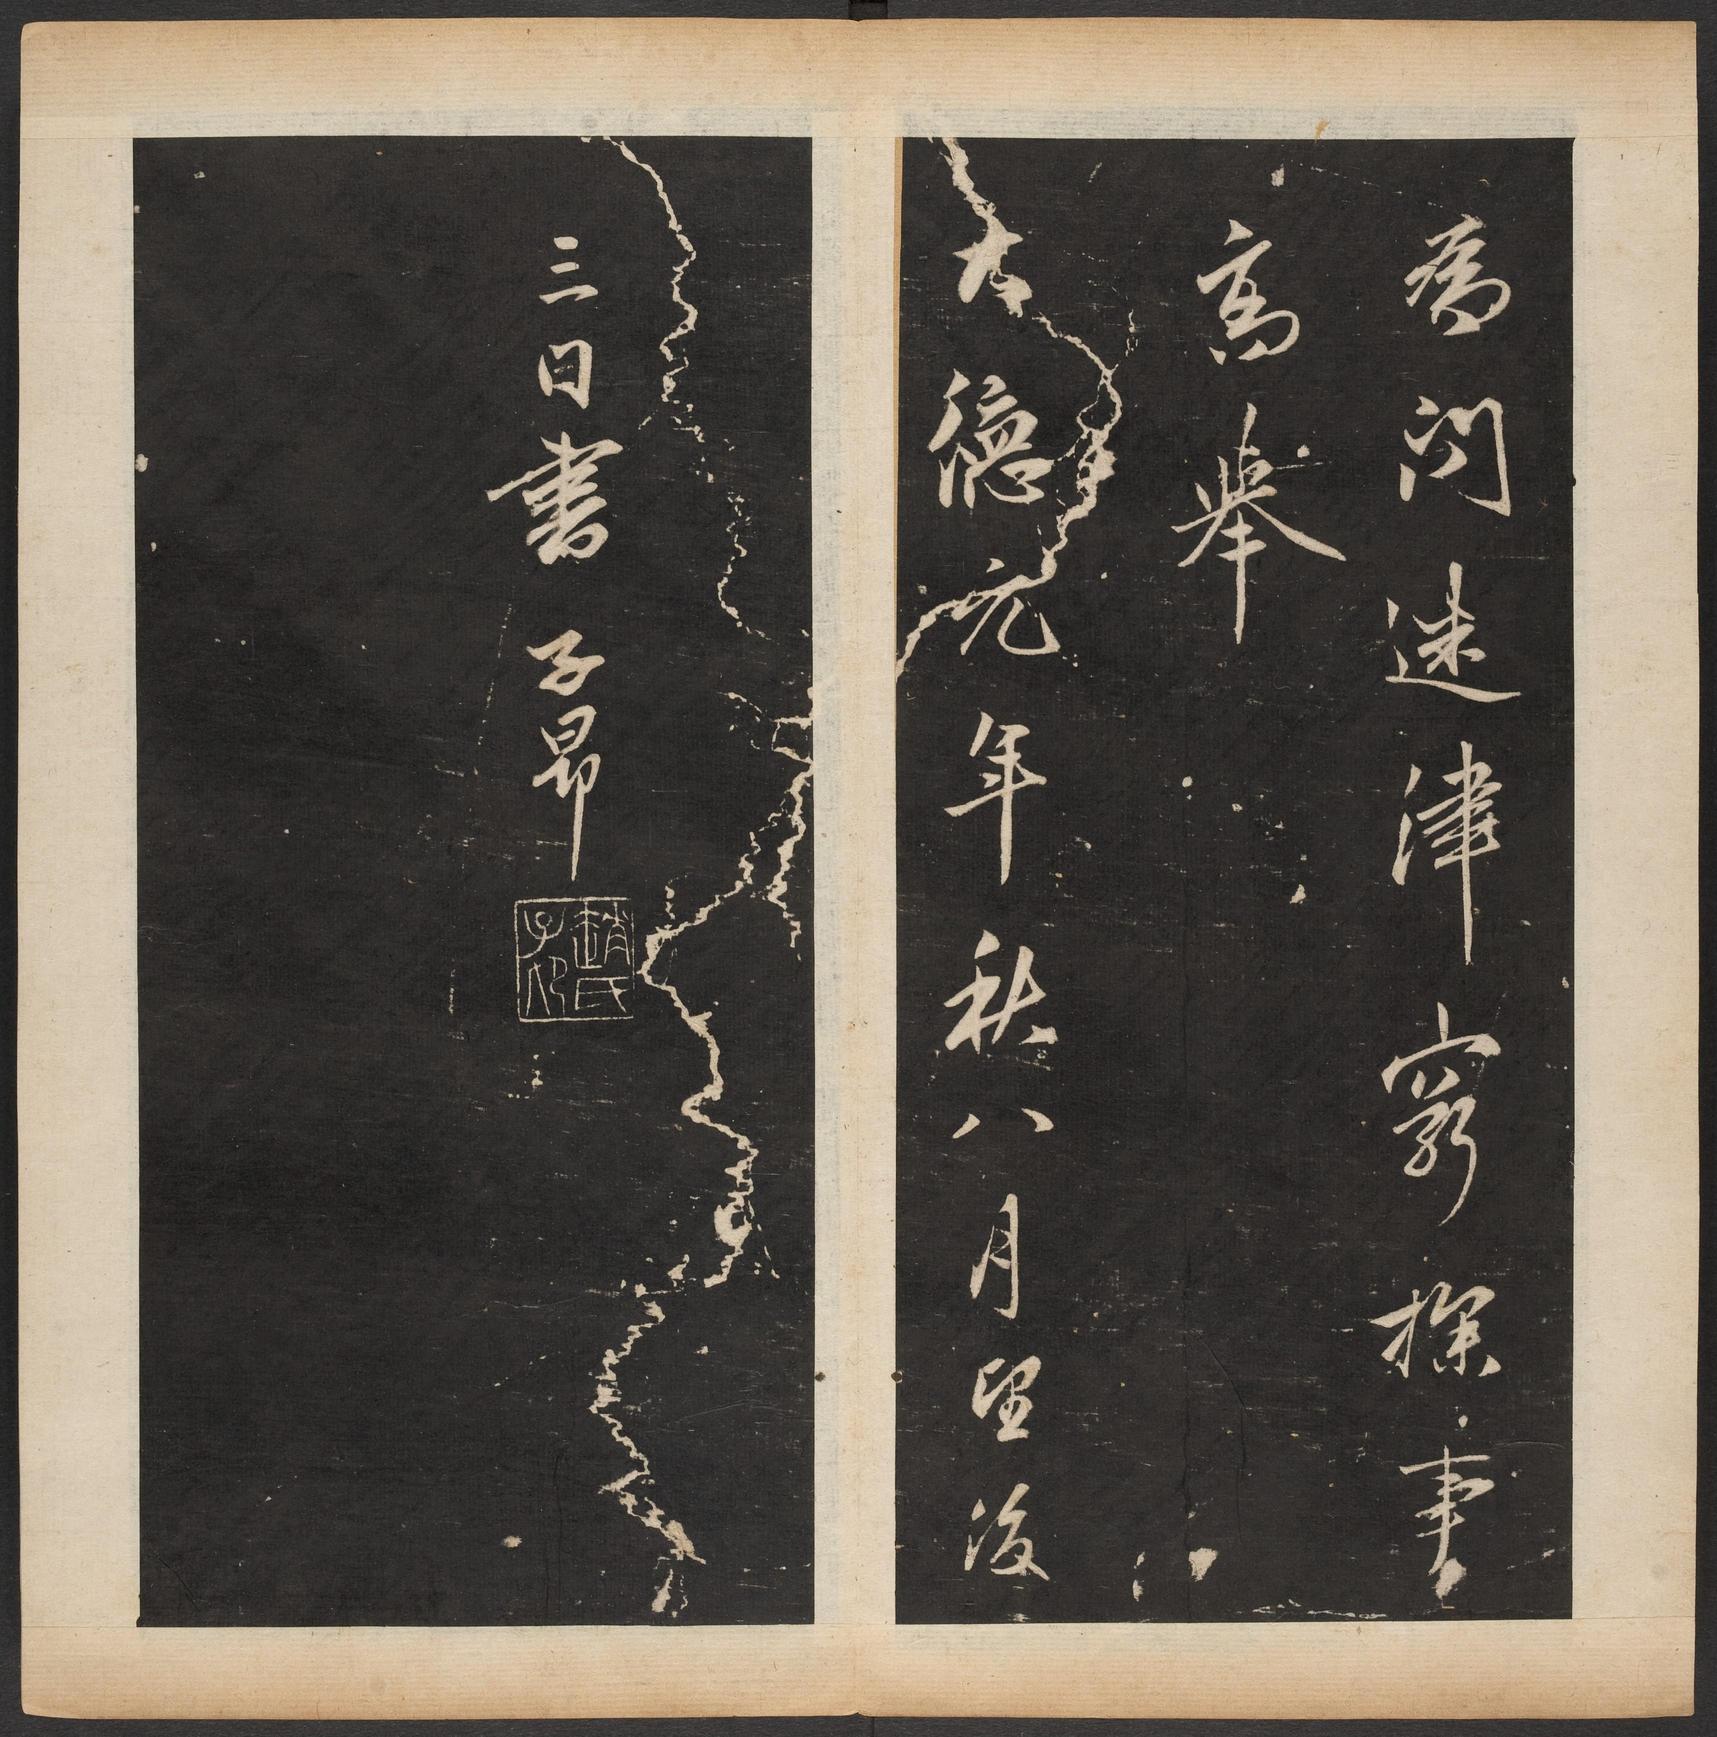 為問迷津窮探事
高舉
大德元年秋八月望後
三日書 子昂
趙氏子昂